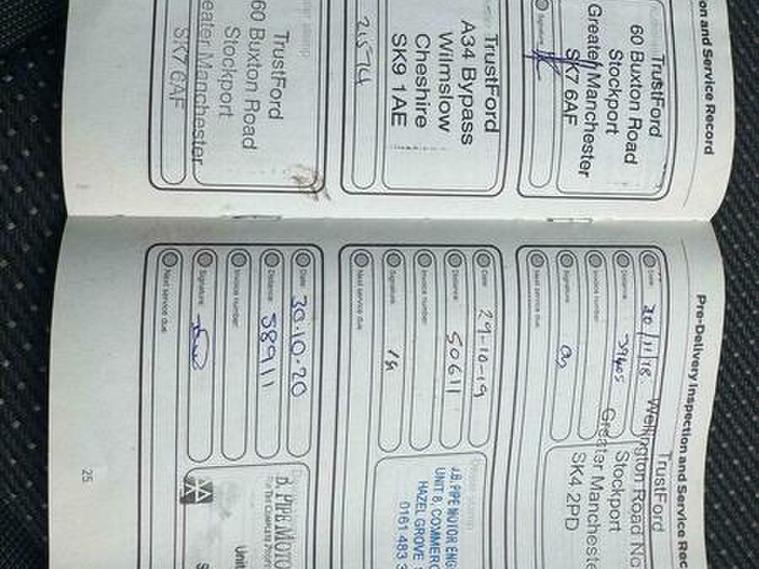 on and Service Record
TrustFord
60 Buxton Road
Stockport
Greater Manchester
SK7 6AF
Signature
TrustFord
A34 Bypass
Wilmslow
Cheshire
SK9 1AE
21574
TrustFord
60 Buxton Road
Stockport
eater Manchester
SK7 6AF
Pre-Delivery Inspection and Service Rec
Date
20/11/18
Distance
39405
Invoice number
Signature
Next service due
TrustFord
Wellington Road No
Stockport
Greater Mancheste
SK4 2PD
Date
29-10-19
Distance
50611
Invoice number
Signature
Next service due
J.B. PIPE MOTOR ENG
UNIT 8, COMMERC
HAZEL GROVE
0161 483 3
Date
30.10.20
Distance
58911
Invoice number
Signature
Next service due
B. PIPE MOTO
Unit
S
25